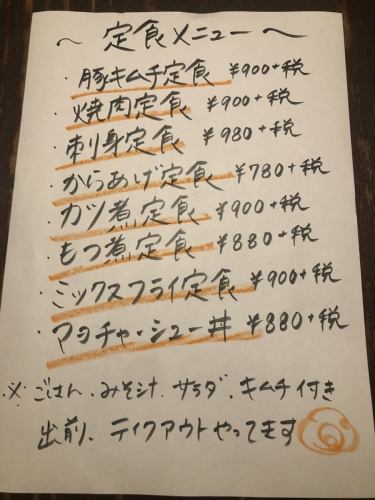 ～ 定食メニュー ～
・豚キムチ定食 ¥900+税
・焼肉定食 ¥900+税
・刺身定食 ¥980+税
・からあげ定食 ¥780+税
・カツ煮定食 ¥900+税
・もつ煮定食 ¥880+税
・ミックスフライ定食 ¥900+税
・マヨチャーシュー丼 ¥880+税
※ごはん、みそ汁、サラダ、キムチ付き
出前、テイクアウトやってます